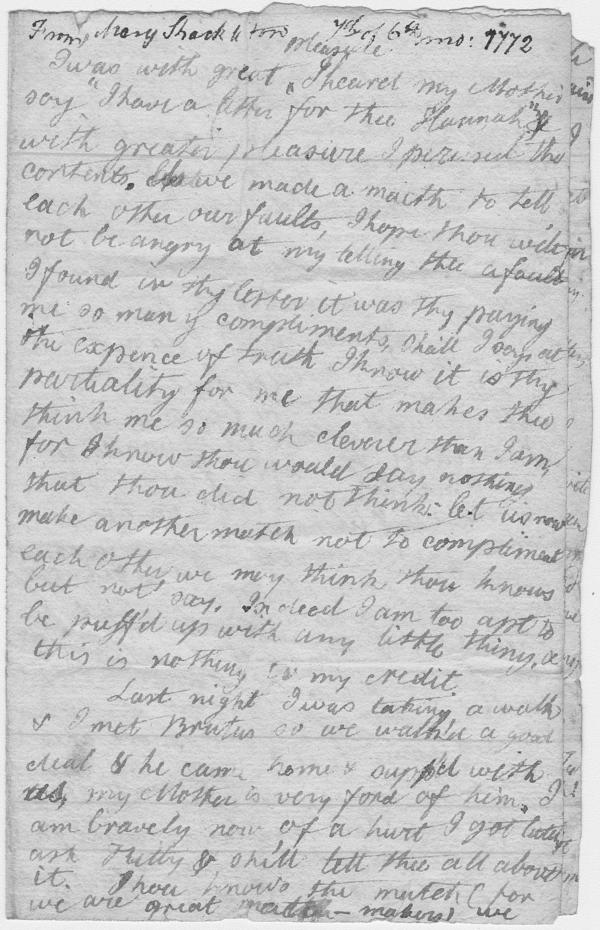 From Mary Shackleton 7th of 6th mo: 1772
pleasure
I was with great ^ I heared my Mother
say "I have a letter for thee Hannah" &
with greater pleasure I perused the
contents. We made a match to tell
each other our faults, I hope thou wilt
not be angry at my telling thee a fault
I found in thy letter, it was thy paying
me so many compliments, shall I say at
the expence of truth I know it is thy
partiality for me that makes thee
think me so much cleverer than I am,
for I know thou would say nothing
that thou did not think: let us now
make another match not to compliment
each other we may think thou knows
but not say. Indeed I am too apt to
be puff'd up with any little thing, &
this is nothing to my credit
Last night I was taking a walk
& I met Brutus so we walk'd a good
deal & he came home & supp'd with
us, my Mother is very fond of him. I
am bravely now of a hurt I got
ask Kitty & she'll tell thee all about
it. Thou knows the match (for
we are great match-makers) we